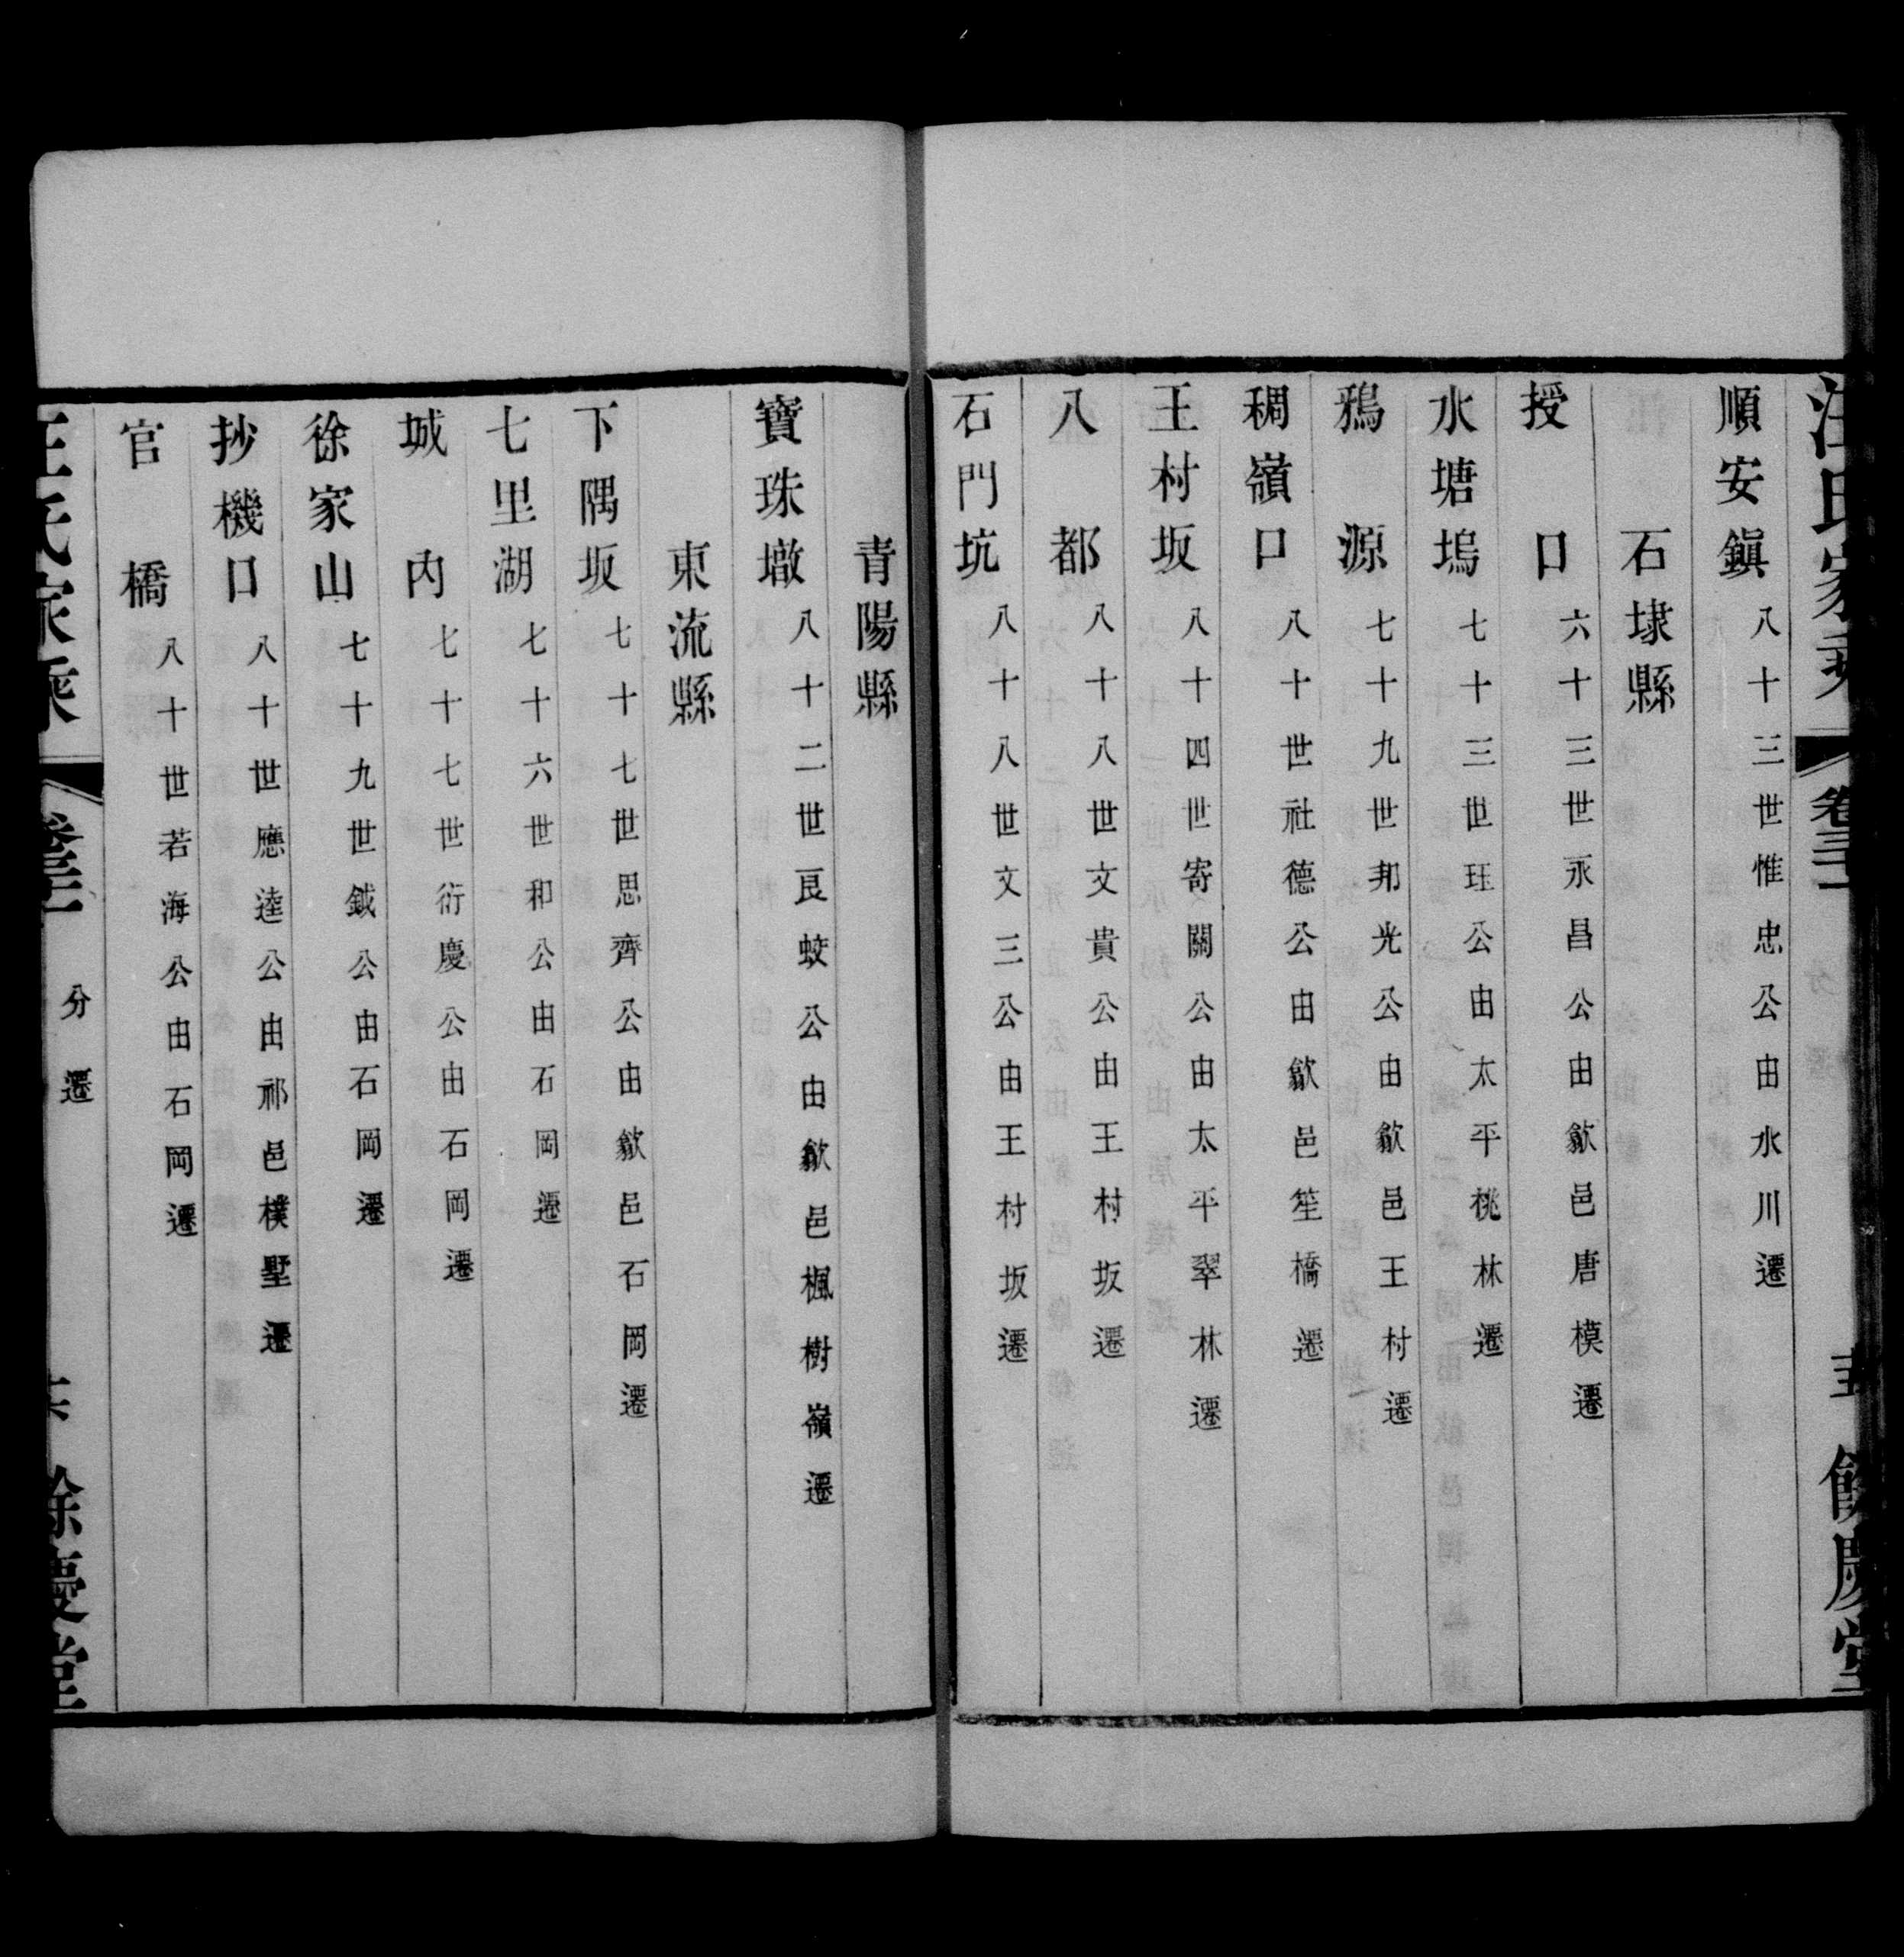 汪氏家乘 卷三十一 五 餘慶堂
順安鎭 八十三世惟忠公由水川遷
石埭縣
授口 六十三世永昌公由歙邑唐模遷
水塘塢 七十三世珏公由太平桃林遷
鴉源 七十九世邦光公由歙邑王村遷
稠嶺口 八十世社德公由歙邑笙橋遷
王村坂 八十四世寄關公由太平翠林遷
八都 八十八世文貴公由王村坂遷
石門坑 八十八世文三公由王村坂遷
青陽縣
寶珠墩 八十二世艮蛟公由歙邑楓樹嶺遷
東流縣
下隅坂 七十七世思齊公由歙邑石岡遷
七里湖 七十六世和公由石岡遷
城內 七十七世衍慶公由石岡遷
徐家山 七十九世鉞公由石岡遷
抄機口 八十世應逵公由祁邑樸墅遷
官橋 八十世若海公由石岡遷
汪氏家乘 分遷 餘慶堂